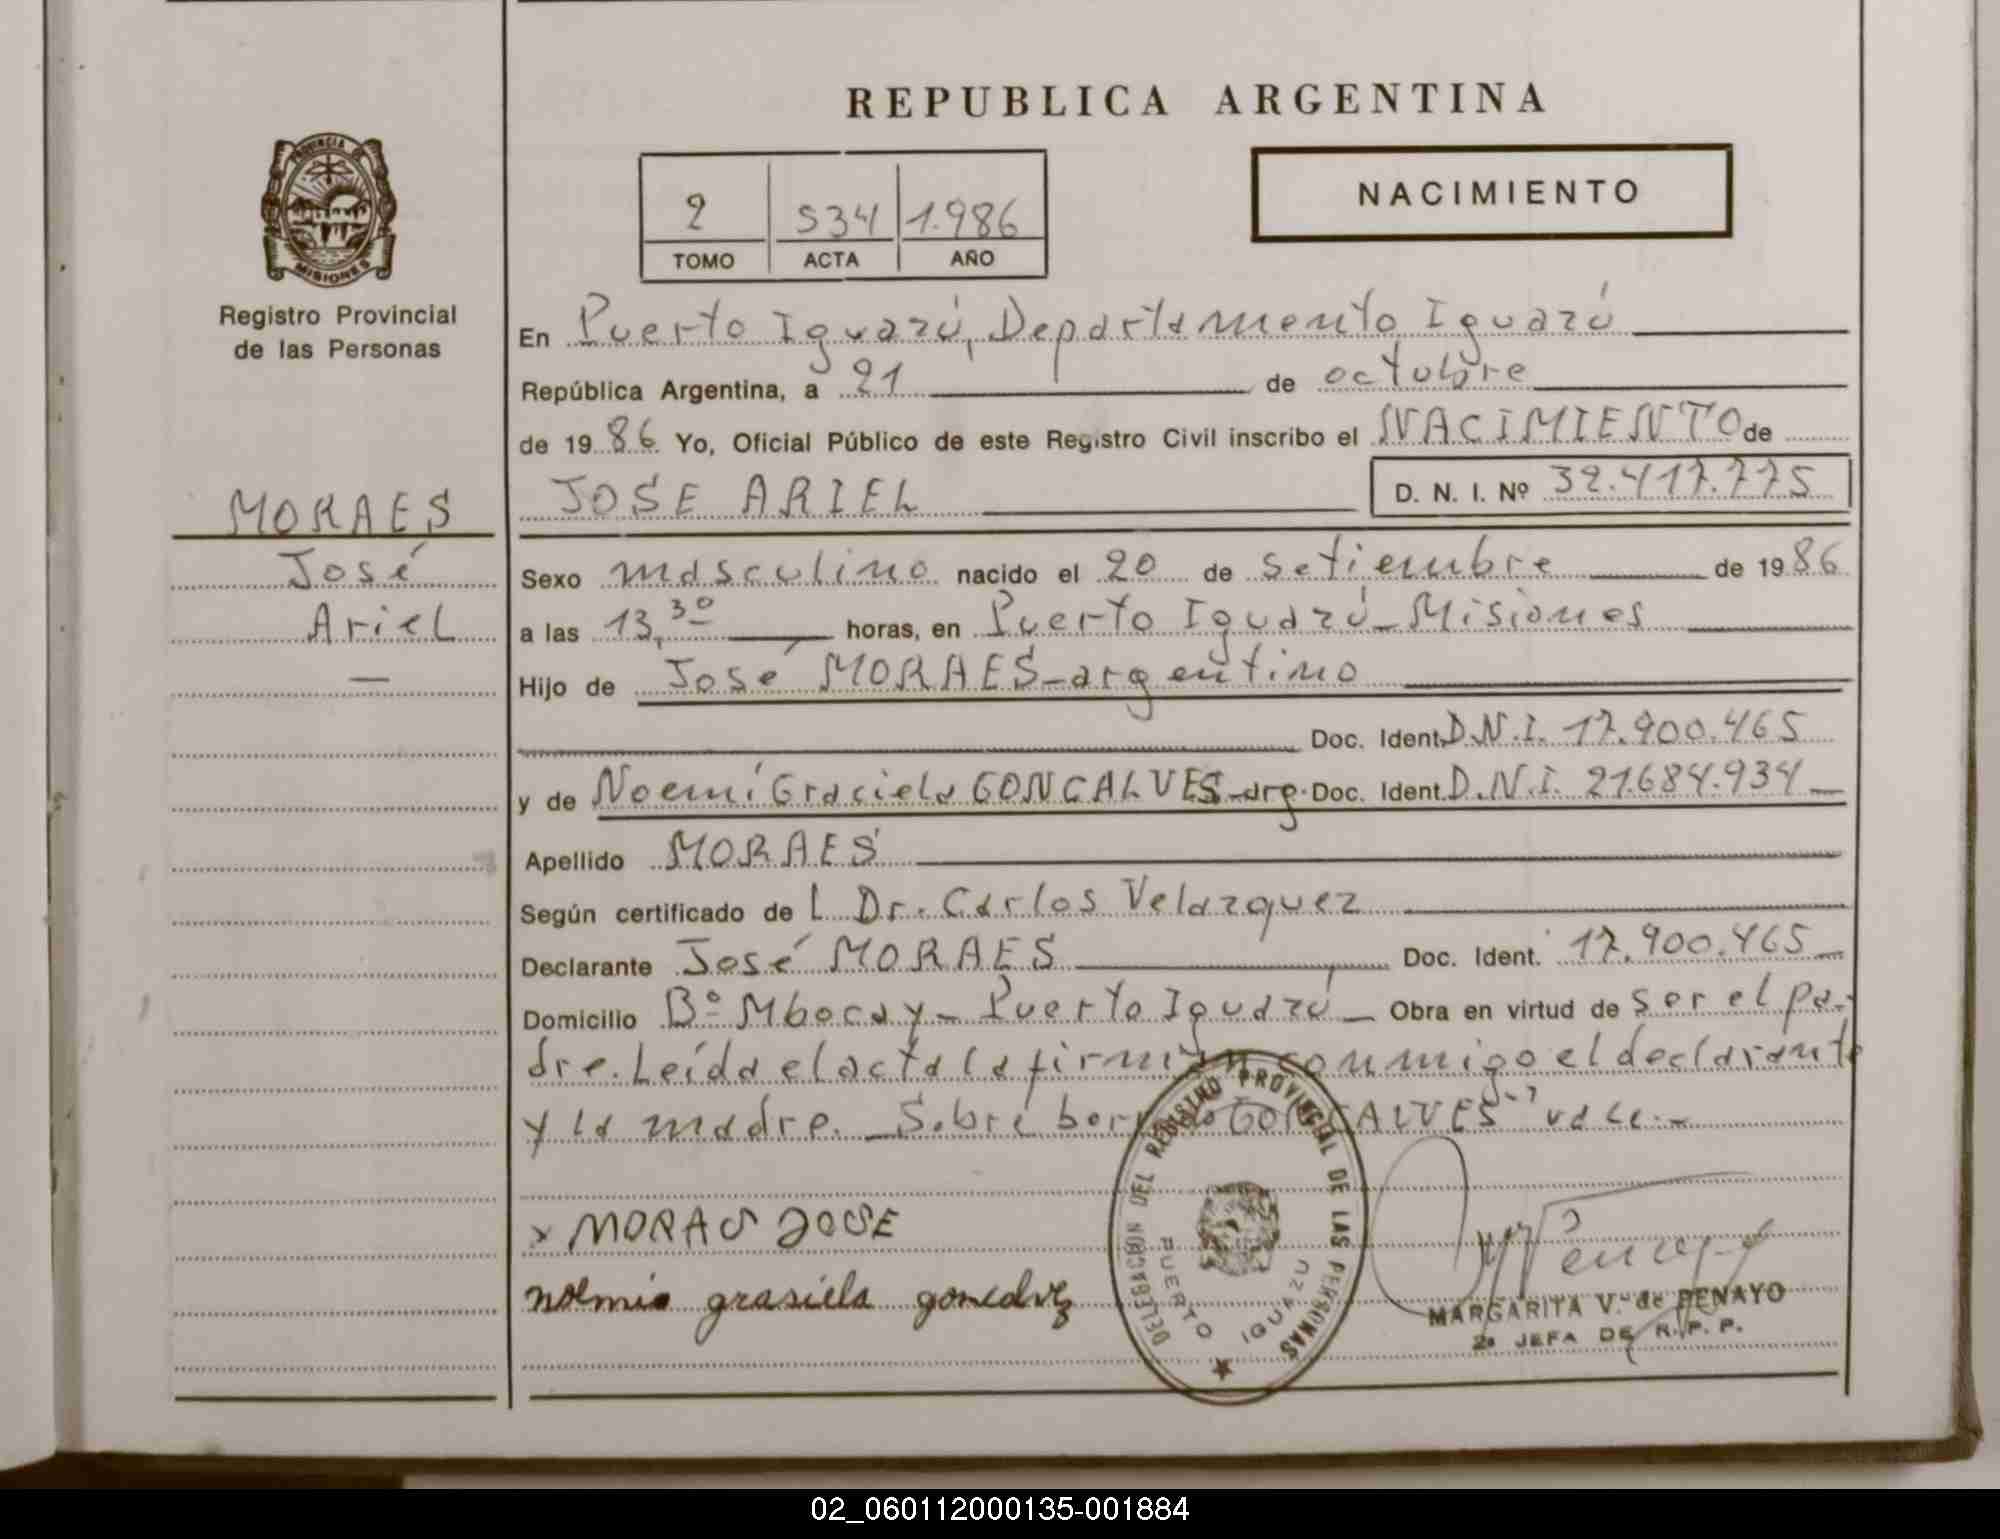 REPUBLICA ARGENTINA
PROVINCIA DE
MISIONES
Registro Provincial
de las Personas
2 534 1.986
TOMO ACTA AÑO
NACIMIENTO
En Puerto Iguazú, Departamento Iguazú
República Argentina, a 21 de octubre
de 1986 Yo, Oficial Público de este Registro Civil inscribo el NACIMIENTO de
JOSE ARIEL D. N. I. Nº 32.417.775
MORAES
José
Ariel
—
Sexo masculino nacido el 20 de setiembre de 1986
a las 13,30 horas, en Puerto Iguazú - Misiones
Hijo de José MORAES - argentino
Doc. Ident. D.N.I. 17.900.465
y de Noemí Graciela GONCALVES - arg. Doc. Ident. D.N.I. 21.684.934
Apellido MORAES
Según certificado de L Dr. Carlos Velazquez
Declarante José MORAES Doc. Ident. 17.900.465
Domicilio Bº Mbocay - Puerto Iguazú - Obra en virtud de ser el pa-
dre. Leída el acta la firman conmigo el declarante
y la madre. - Sobre borrado GONCALVES" vale. -
x MORAS JOSE
noemia grasiela goncalvez
DELEGACION DEL REGISTRO PROVINCIAL DE LAS PERSONAS
PUERTO IGUAZU
MARGARITA V. de PENAYO
2a JEFA DE R. P. P.
02_060112000135-001884